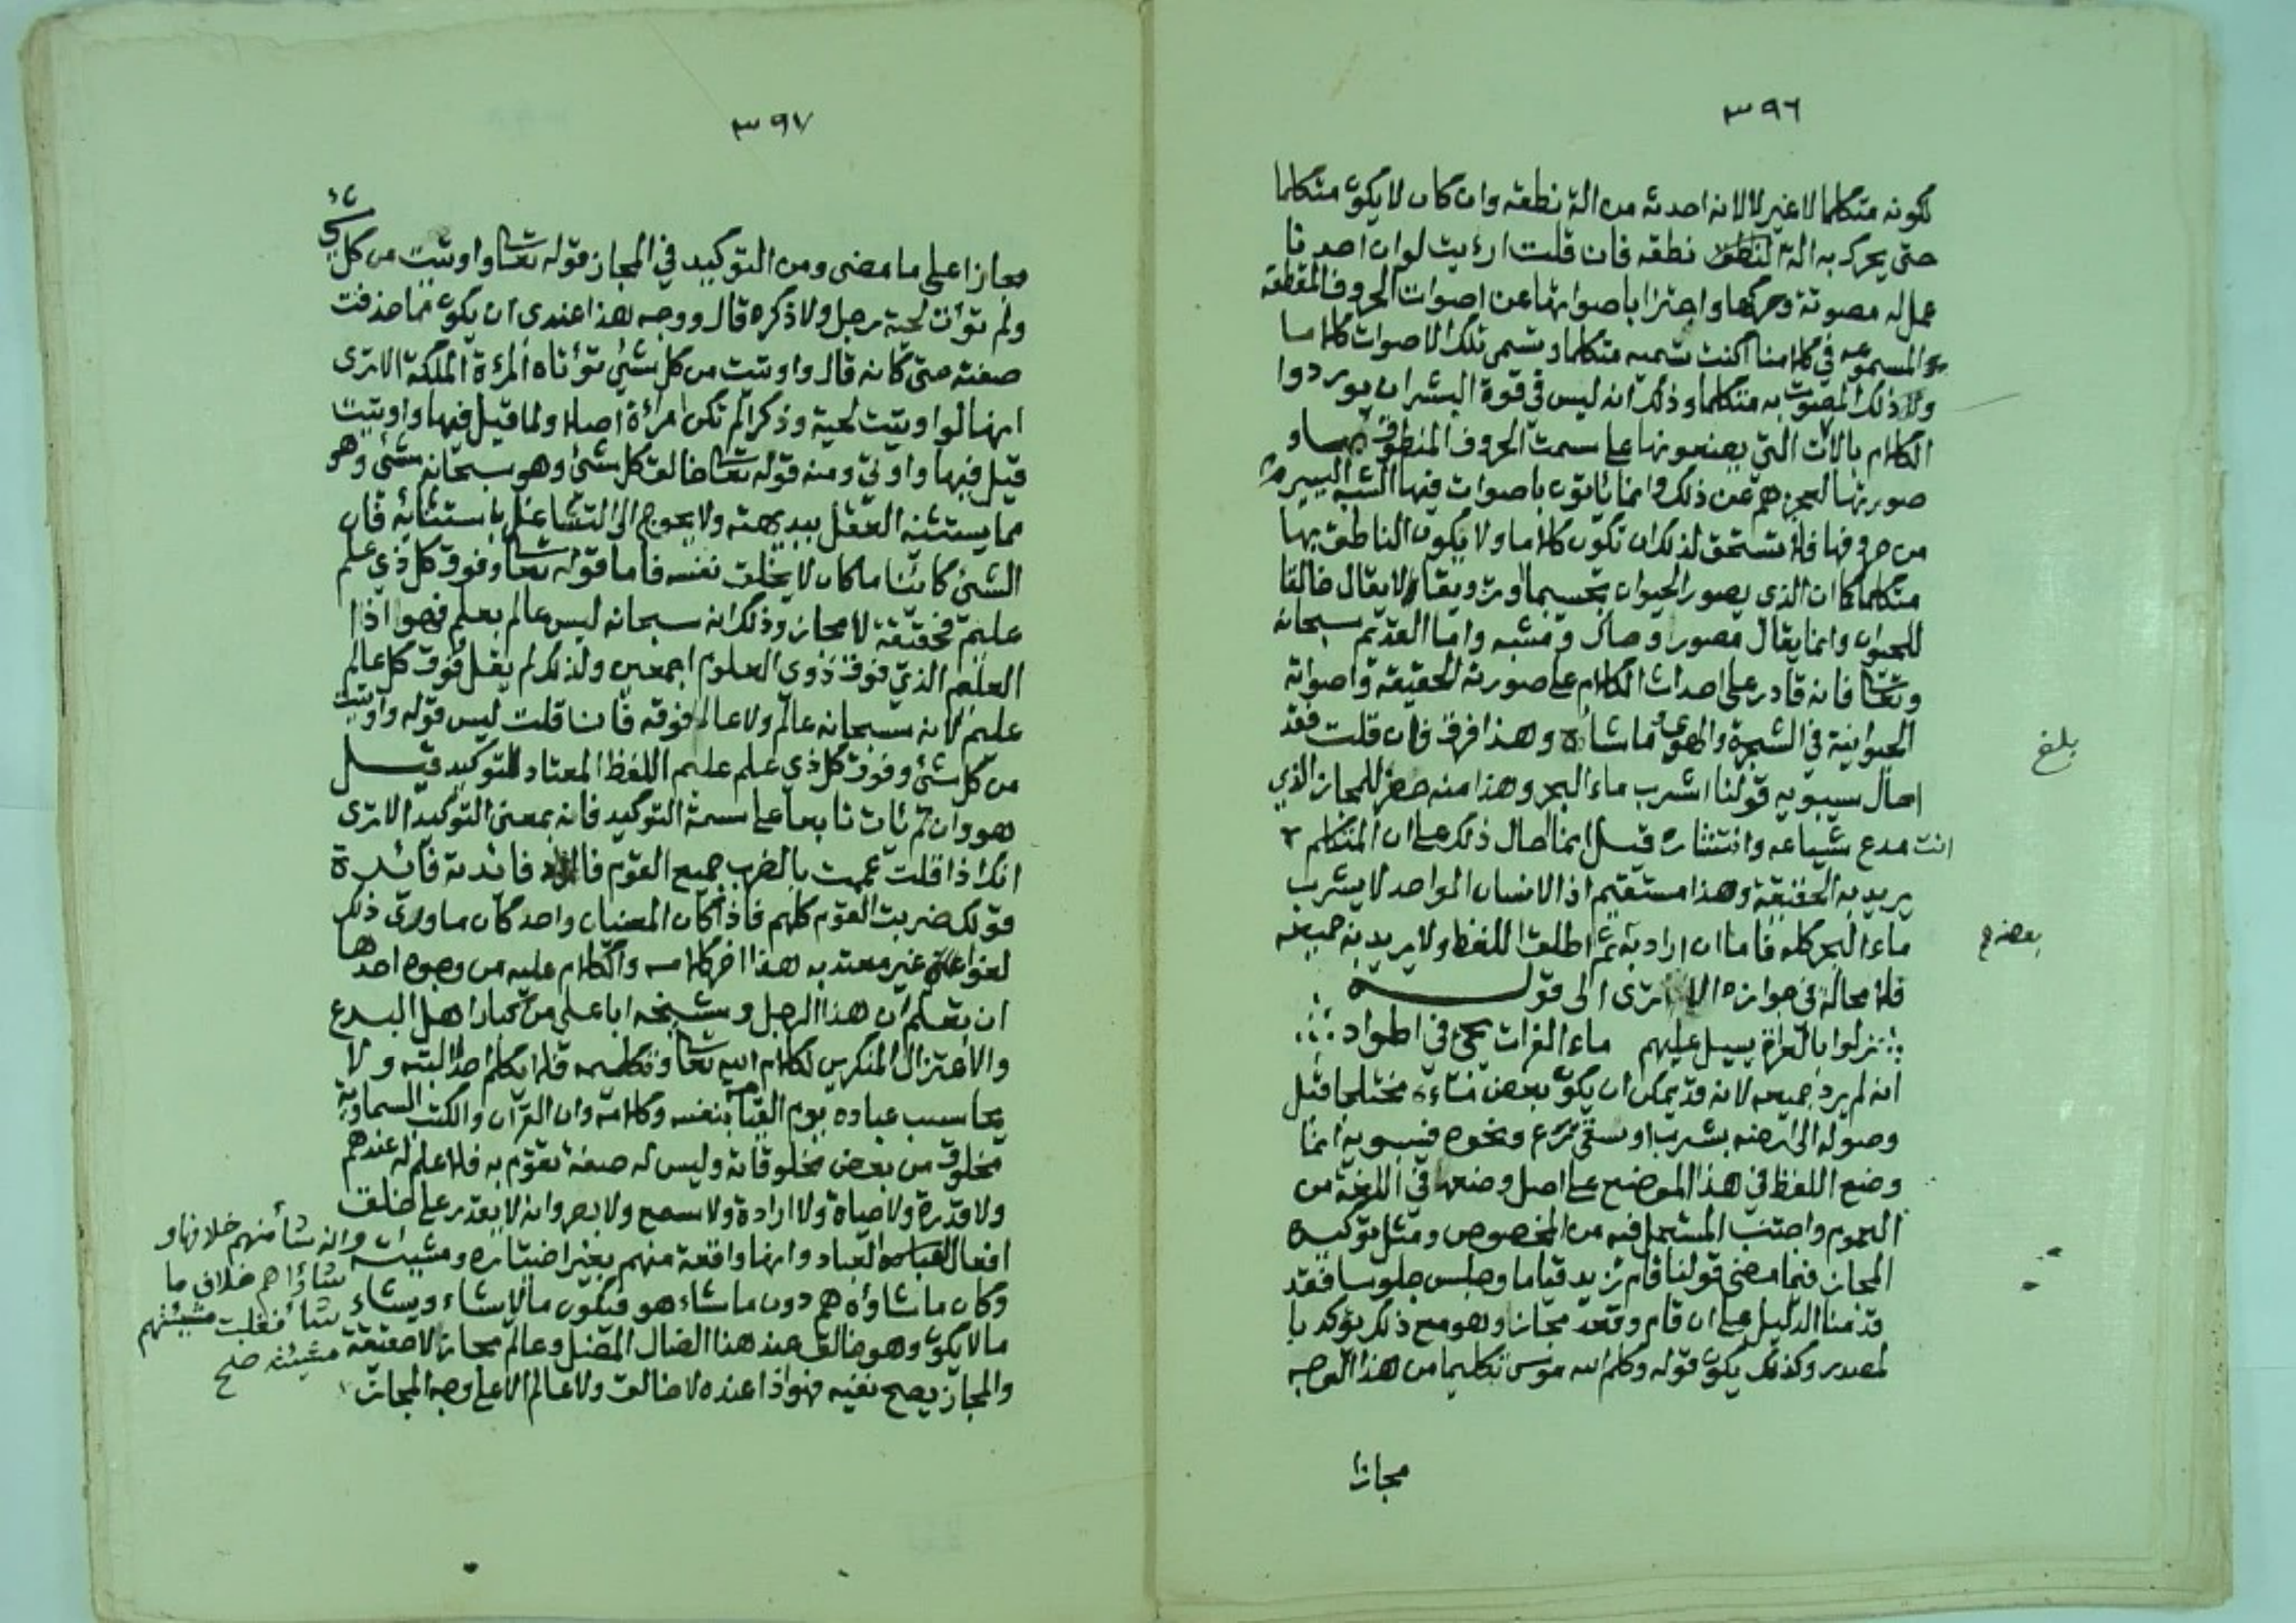 ٣٩٦
لكونه متكلما لا غير لا لانه احدثه من الة نطقه وان كان لا يكون متكلما
حتى يحرك به الة النطق نطقه فان قلت ارءيت لو ان احدنا
عمل له مصوتة وحركها واجتزا باصواتها عن اصوات الحروف المقطعة
المسموعه في كلامنا اكنت تسميه متكلما وتسمي تلك الاصوات كلاما
ولا ذلك المصوت به متكلما وذلك انه ليس في قوة البشر ان يوردوا
الكلام بالالات التي يصنعونها على سمت الحروف المنطوق بها و
صورتها لعجزهم عن ذلك وانما ياتون باصوات فيها الشبه اليسير
من حروفها فلا تستحق لذلك ان تكون كلاما ولا يكون الناطق بها
متكلما كما ان الذي يصور الحيوان تجسيما او ترويقا لا يقال خالقا
للحيوان وانما يقال مصور وحاك ومشبه واما القديم سبحانه
وتعا فانه قادر على احداث الكلام على صورته الحقيقة واصواته
الحيوانية في الشجرة والهوى وما شاء وهذا فرق فان قلت فقد
بلغ
احال سيبويه قولنا اشرب ماء البحر وهذا منه حظر للمجاز الذي
انت مدع شياعه وانتشاره قيل انما احال ذلك على ان المتكلم
يريد به الحقيقة وهذا مستقيم اذ الانسان الواحد لا يشرب
ماء البحر كله فاما ان اراد به ثم اطلق اللفظ ولا يريد به جميعه
بعضه
فلا محالة في جوازه الا ترى الى قوله
نزلوا بالعراق يسيل عليهم ماء الفرات يجئ في اطواد
انه لم يرد جميعه لانه قد يمكن ان يكون بعض مختلجا قبل
وصوله الى ارضه بشرب او سقي زرع ونحوه فسيبويه انما
وضع اللفظ في هذا الموضع على اصل وضعها في اللغة من
العموم واجتنب المستعمل فيه من الخصوص ومثل توكيده
المجاز فيما مضى قولنا قام زيد قياما وجلس جلوسا فقد
قدمنا الدليل على ان قام وقعد مجازا وهو مع ذلك يؤكد با
لمصدر وكذلك يكون قوله وكلم الله موسى تكليما من هذا الوجه
مجازا
٣٩٧
مجازا على ما مضى ومن التوكيد في المجاز قوله تعا واوتيت من كل شئ
ولم تؤت لحية رجل ولا ذكره قال ووجه هذا عندي ان يكون مما حذفت
صفته حتى كانه قال واوتيت من كل شئ تؤتاه المرءة الملكة الا ترى
انها لو اوتيت لحية وذكرا لم تكن امرأة اصلا ولما قيل فيها واوتيت
قيل فيها واوتي ومنه قوله تعا خالق كل شئ وهو سبحانه شئ وهو
مما يستثنيه العقل ببديهته ولا يحوج الى التشاغل باستثنائه فان
الشئ كائنا ما كان لا يخلق نفسه فاما قوله تعا وفوق كل ذي علم
عليم فحقيقة لا مجاز وذلك انه سبحانه ليس عالم بعلم فهو اذا
العليم الذي فوق ذوي العلوم اجمعين ولذلك لم يقل فوق كل عالم
عليم لانه سبحانه عالم ولا عالم فوقه فان قلت ليس قوله واوتيت
من كل شئ وفوق كل ذي علم عليم اللفظ المعتاد للتوكيد قيل
هو وان لم يات تابعا على سمة التوكيد فانه بمعنى التوكيد الا ترى
انك اذا قلت عممت بالضرب جميع القوم فائدته فائدة
قولك ضربت القوم كلهم فاذا كان المعنيان واحد كان ما وراء ذلك
لغوا غير معتد به هذا اخر كلامه والكلام عليه من وجوه احدها
ان تعلم ان هذا الرجل وشيخه ابا علي من كبار اهل البدع
والاعتزال المنكرين لكلام الله تعا وتكليمه فلا يكلم احدا البته ولا
يحاسب عباده يوم القيامة بنفسه وكلامه وان القرآن والكتب السماوية
مخلوق من بعض مخلوقاته وليس له صفة تقوم به فلا علم له عندهم
ولا قدرة ولا حياة ولا ارادة ولا سمع ولا بصر وانه لا يقدر على خلق
افعال العباد وانها واقعة منهم بغير اختياره ومشيئته وانه شأ منهم خلافها و
وكان ما شاؤه هم دون ما شاء هو فيكون ما لا يشاء ويشاء شاؤا هم خلاف ما
شأ فغلبت مشيئتهم
ما لا يكون وهو خالق عند هذا الضال المضل وعالم مجازا لا حقيقة مشيئته صح
والمجاز يصح نفيه فهو اذا عنده لا خالق ولا عالم الا على وجه المجاز